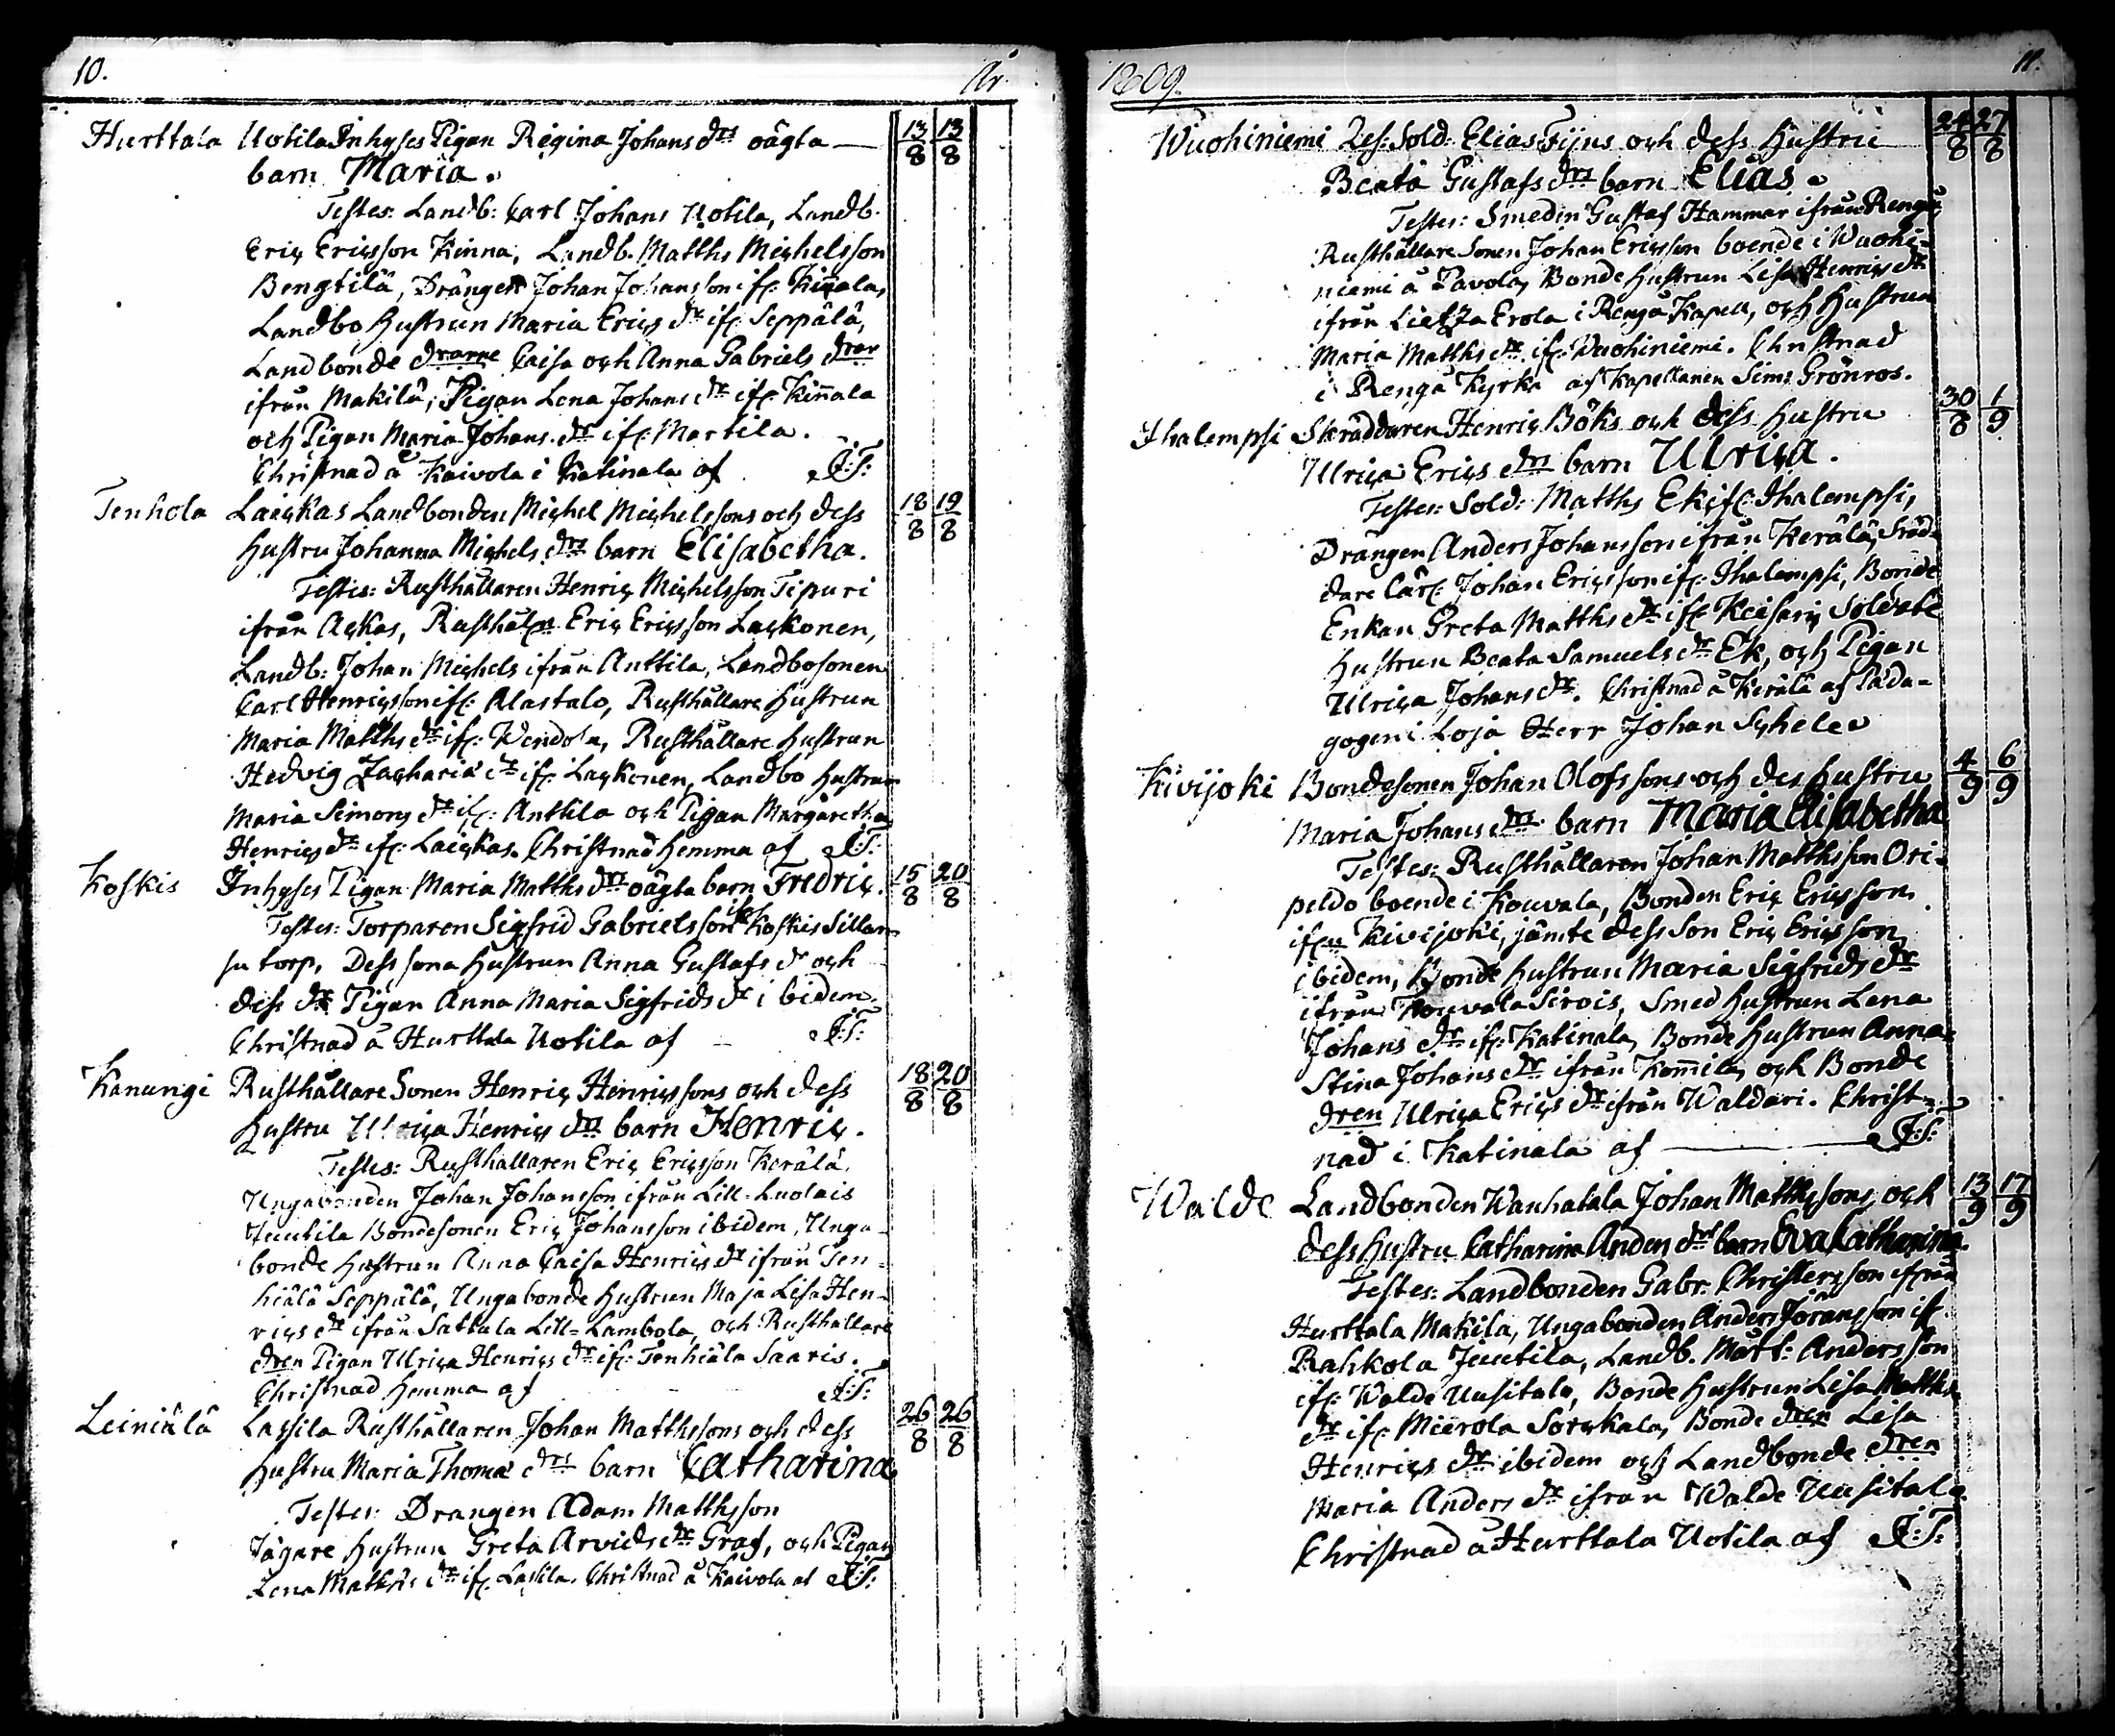 10. År
Hurttala Uotila Inhyses Pigan Regina Johans drs oägta — 13/8 13/8
barn Maria.
Testes: Landb: Carl Johans Uotila, Landb.
Eric Ericsson Kinna, Landb. Matths Michelsson
Bengtilä, Drängen Johan Johansson ifr: Kiñala,
Landbo Hustrun Maria Erics dr ifr Seppälä,
Landbonde drarne Caisa och Anna Gabriels drar
ifrån Makilä, Pigan Lena Johans dr ifr Kiñala
och Pigan Maria Johans dr ifr Martila.
Christnad å Kaivola i Katinala af J:T:
Tenhola Laickas Landbonden Michel Michelssons och dess 18/8 19/8
Hustru Johanna Michels drs barn Elisabetha.
Testes: Rusthållaren Henric Michelsson Tipuri
ifrån Ackas, Rusthålrn Eric Ericsson Lackonen,
Landb: Johan Michels ifrån Anttila, Landbosonen
Carl Henricsson ifr: Alastalo, Rusthållare Hustrun
Maria Matths dr ifr: Wendola, Rusthållare Hustrun
Hedvig Zachariæ dr ifr Lackonen, Landbo Hustrun
Maria Simons dr ifr: Anttila och Pigan Margaretha
Henrics dr ifr: Laickas. Christnad hemma af J:T:
Koskis Inhyses Pigan Maria Matths drs oägta barn Fredric. 15/8 20/8
Testes: Torparen Sigfrid Gabrielsson ifr Koskis Sillan-
su torp, Dess sona Hustrun Anna Gustafs dr och
dess dr Pigan Anna Maria Sigfrids dr ibidem.
Christnad å Hurttala Uotila af – J:T:
Kanungi Rusthållare Sonen Henric Henricssons och dess 18/8 20/8
Hustru Ulrica Henrics drs barn Henric.
Testes: Rusthållaren Eric Ericsson Kerälä,
Ungabonden Johan Johansson ifrån Lill-Luolais
Juutila Bondesonen Eric Johansson ibidem, Unga-
bonde Hustrun Anna Caisa Henrics dr ifrån Ten-
hiälä Seppälä, Ungabonde Hustrun Maja Lisa Hen-
rics dr ifrån Sattula Lill-Lambola, och Rusthållare
dren Pigan Ulrica Henrics dr ifr: Tenhiäla Saaris.
Christnad hemma af J:T:
Leiniälä Lassila Rusthållaren Johan Matthssons och dess 26/8 26/8
Hustru Maria Thomæ drs barn Catharina
Testes: Drängen Adam Matthsson
Jägare Hustrun Greta Arvids dr Graf, och Pigan
Lena Matths dr ifr. Lassila. Christnad å Kaivola af J:T:
1809. 11.
Wuohiniemi Les: Sold: Elias Fijns och dess Hustru 24/8 27/8
Beata Gustafs drs barn Elias.
Testes: Smeden Gustaf Hammar ifrån Rengå,
Rusthållare Sonen Johan Ericsson boende i Wuohi-
niemi å Pavola, Bonde Hustrun Lisa Henrics dr
ifrån Lietza Erola i Rengå Kapell, och Hustrun
Maria Matths dr ifr: Wuohiniemi. Christnad
i Rengå Kyrka af Kapellanen Sim: Grönros.
Ihalempsi Skräddaren Henric Böks och dess Hustru 30/8 1/9
Ulrica Erics drs barn Ulrica.
Testes: Sold: Matths Ek ifr: Ihalempsi,
Drängen Anders Johansson ifrån Kerälä, Sräd-
dare Lärl: Johan Ericsson ifr: Ihalempsi, Bonde
Enkan Greta Matths dr ifr Keisari, Soldate
Hustrun Beata Samuels dr Ek, och Pigan
Ulrica Johans dr. Christnad å Kerälä af Päda-
gogen i Loja Herr Johan Syhele
Kivijoki Bondesonen Johan Olofssons och des Hustru 4/9 6/9
Maria Johans drs barn Maria Elisabetha
Testes: Rusthållaren Johan Matthsson Ori-
peldo boende i Kouvala, Bonden Eric Ericsson
ifrn Kivijoki, jämte dess Son Eric Ericsson
ibidem, Bonde Hustrun Maria Sigfrids dr
ifrån Kouvala Sirois, Smed Hustrun Lena
Johans dr ifr: Katinala, Bonde Hustrun Anna
Stina Johans dr ifrån Komila, och Bonde
dren Ulrica Erics dr ifrån Waldari. Christ-
nad i Katinala af — J:T:
Walde Landbonden Wanhatala Johan Matthssons och 13/9 17/9
dess Hustru Catharina Anders drs barn Eva Catharina.
Testes: Landbonden Gabr: Christersson ifrån
Hurttala Makila, Ungabonden Anders Jöransson ifr.
Rahkola Juutila, Landb. Matt: Andersson
ifr: Walde Uusitalo, Bonde Hustrun Lisa Matths
dr ifr: Mierola Sorckala, Bonde dren Lisa
Henrics dr ibidem och Landbonde dren
Maria Anders dr ifrån Walde Uusitalo
Christnad å Hurttala Uotila af J:T: